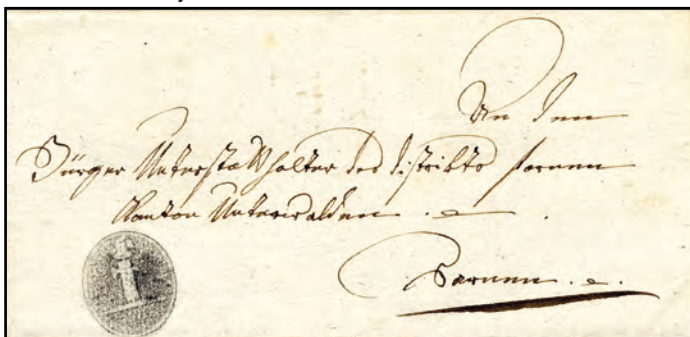 An den
Bürger Unterstatthalter des Distrikts Sarnen
Kanton Unterwalden
Sarnen